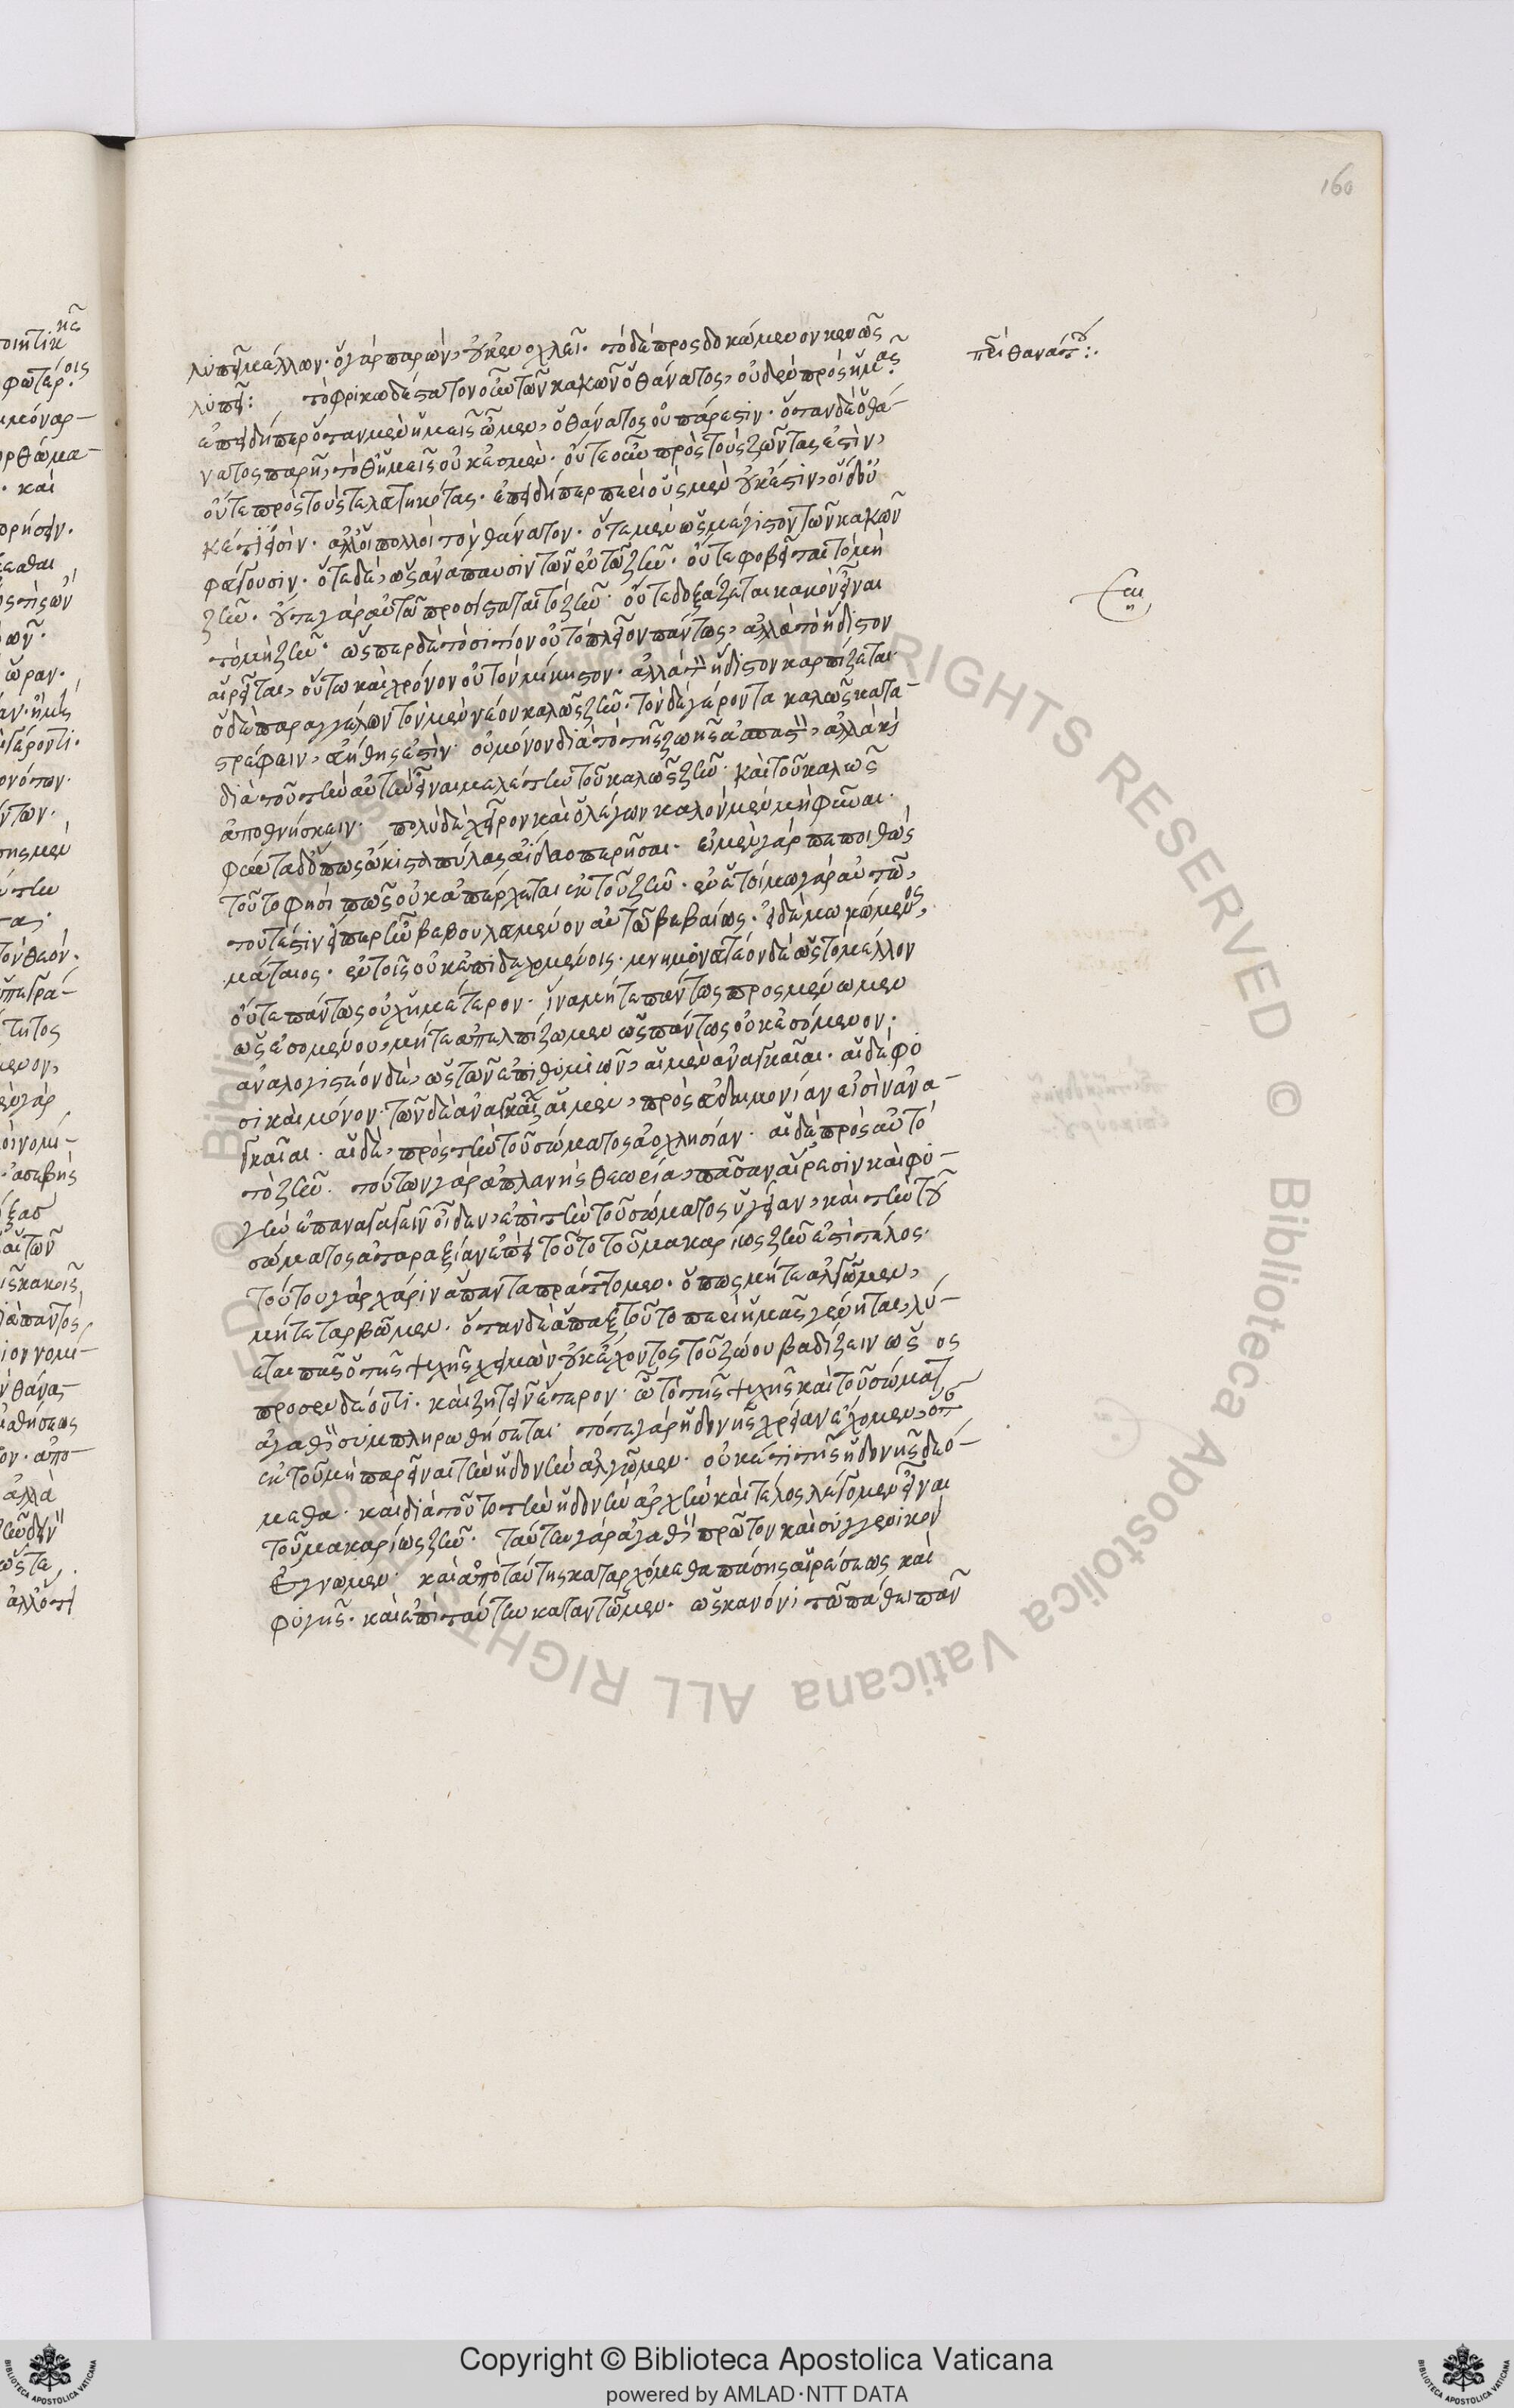 160
λυπεῖ μέλλων· ὃ γὰρ παρὼν, οὐκ ἐνοχλεῖ· τὸ δὲ προσδοκώμενον κενῶς
περὶ θανάτου:
λυπεῖ: τὸ φρικωδέστατον οὖν τῶν κακῶν ὁ θάνατος, οὐδὲν πρὸς ἡμᾶς·
ἐπειδήπερ ὅταν μὲν ἡμεῖς ὦμεν, ὁ θάνατος οὐ πάρεστιν· ὅταν δὲ ὁ θά-
νατος παρῆ, τόθ' ἡμεῖς οὐκ ἐσμέν· οὔτε οὖν πρὸς τοὺς ζῶντας ἐστὶν,
οὔτε πρὸς τοὺς τετελευτηκότας· ἐπειδήπερ περὶ οὓς μὲν οὐκ ἔστιν, οἱ δ' οὐ
κέτ' εἰσίν· ἀλλ' οἱ πολλοὶ τὸν θάνατον· ὁτὲ μὲν ὡς μέγιστον τῶν κακῶν
φεύγουσιν· ὁτὲ δὲ, ὡς ἀνάπαυσιν τῶν ἐν τῶ ζῆν· οὔτε φοβεῖται τὸ μὴ
ζῆν· οὔτε γὰρ αὐτῶ προσίσταται τὸ ζῆν· οὔτε δοξάζεται κακὸν εἶναι
τὸ μὴ ζῆν· ὥσπερ δὲ τὸ σιτίον οὐ τὸ πλεῖον πάντως, ἀλλὰ τὸ ἥδιστον
αἱρεῖται, οὕτω καὶ χρόνον οὐ τὸν μήκιστον· ἀλλὰ τὸν ἥδιστον καρπίζεται·
ὁ δὲ παραγγέλων τὸν μὲν νέον καλῶς ζῆν· τὸν δὲ γέροντα καλῶς κατα-
στρέφειν, εὐήθης ἐστὶν· οὐ μόνον διὰ τὸ τῆς ζωῆς ἀσπαστὸν, ἀλλὰ καὶ
διὰ τοῦ τὴν αὐτὴν εἶναι μελέτην τοῦ καλῶς ζῆν· καὶ τοῦ καλῶς
ἀποθνήσκειν· πολὺ δὲ χεῖρον καὶ ὁ λέγων καλὸν μὲν μὴ φῦναι·
φύντα δ' ὅπως ὤκιστα πύλας ἀίδαο περῆσαι· εἰ μὲν γὰρ πεποιθὼς
τοῦτο φησὶ πῶς οὐκ ἀπέρχεται ἐκ τοῦ ζῆν· ἐν ἑτοίμω γὰρ αὐτῶ,
τοῦτ' ἔστιν εἴπερ ἦν βεβουλευμένον αὐτῶ βεβαίως· εἰ δὲ μωκώμενος,
μάταιος· ἐν τοῖς οὐκ ἐπιδεχομένοις· μνημονευτέον δὲ ὡς τὸ μέλλον
οὔτε πάντως οὐχ ἡμέτερον· ἵνα μήτε πάντως προσμένωμεν
ὡς ἐσομένου, μήτε ἀπελπίζωμεν ὡς πάντως οὐκ ἐσόμενον·
ἀναλογιστέον δὲ, ὡς τῶν ἐπιθυμιῶν, αἱ μὲν ἀναγκαῖαι· αἱ δὲ φυ
σικαὶ μόνον· τῶν δὲ ἀναγκαίων αἱ μὲν, πρὸς εὐδαιμονίαν εἰσὶν ἀνα-
γκαῖαι· αἱ δὲ, πρὸς τὴν τοῦ σώματος ἀοχλησίαν· αἱ δὲ πρὸς αὐτὸ
τὸ ζῆν· τούτων γὰρ ἀπλανὴς θεωρία, πᾶσαν αἵρεσιν καὶ φυ-
γὴν ἐπαναγαγεῖν οἶδεν, ἐπὶ τὴν τοῦ σώματος ὑγείαν, καὶ τὴν τοῦ
σώματος ἀταραξίαν ἐπεὶ τοῦτο τοῦ μακαρίως ζῆν ἐστὶ τέλος·
τούτου γὰρ χάριν ἅπαντα πράττομεν· ὅπως μήτε ἀλγῶμεν,
μήτε ταρβῶμεν· ὅταν δὲ ἅπαξ τοῦτο περὶ ἡμᾶς γένηται, λύ-
εται πᾶς ὁ τῆς ψυχῆς χειμὼν οὐκ ἔχοντος τοῦ ζώου βαδίζειν ὡς
προσενδέον τι· καὶ ζητεῖν ἕτερον· ὧ τὸ τῆς ψυχῆς καὶ τοῦ σώματος
ἀγαθὸν συμπληρωθήσεται· τότε γὰρ ἡδονῆς χρείαν ἔχομεν, ὅταν
ἐκ τοῦ μὴ παρεῖναι τὴν ἡδονὴν ἀλγῶμεν· οὐκέτι τῆς ἡδονῆς δεό-
μεθα· καὶ διὰ τοῦτο τὴν ἡδονὴν ἀρχὴν καὶ τέλος λέγομεν εἶναι
τοῦ μακαρίως ζῆν· ταύτην γὰρ ἀγαθὸν πρῶτον καὶ συγγενικὸν
ἔγνωμεν· καὶ ἀπὸ ταύτης καταρχόμεθα πάσης αἱρέσεως καὶ
φυγῆς· καὶ ἐπὶ ταύτην καταντῶμεν· ὡς κανόνι τῶ πάθει πᾶν
Copyright © Biblioteca Apostolica Vaticana
powered by AMLAD·NTT DATA